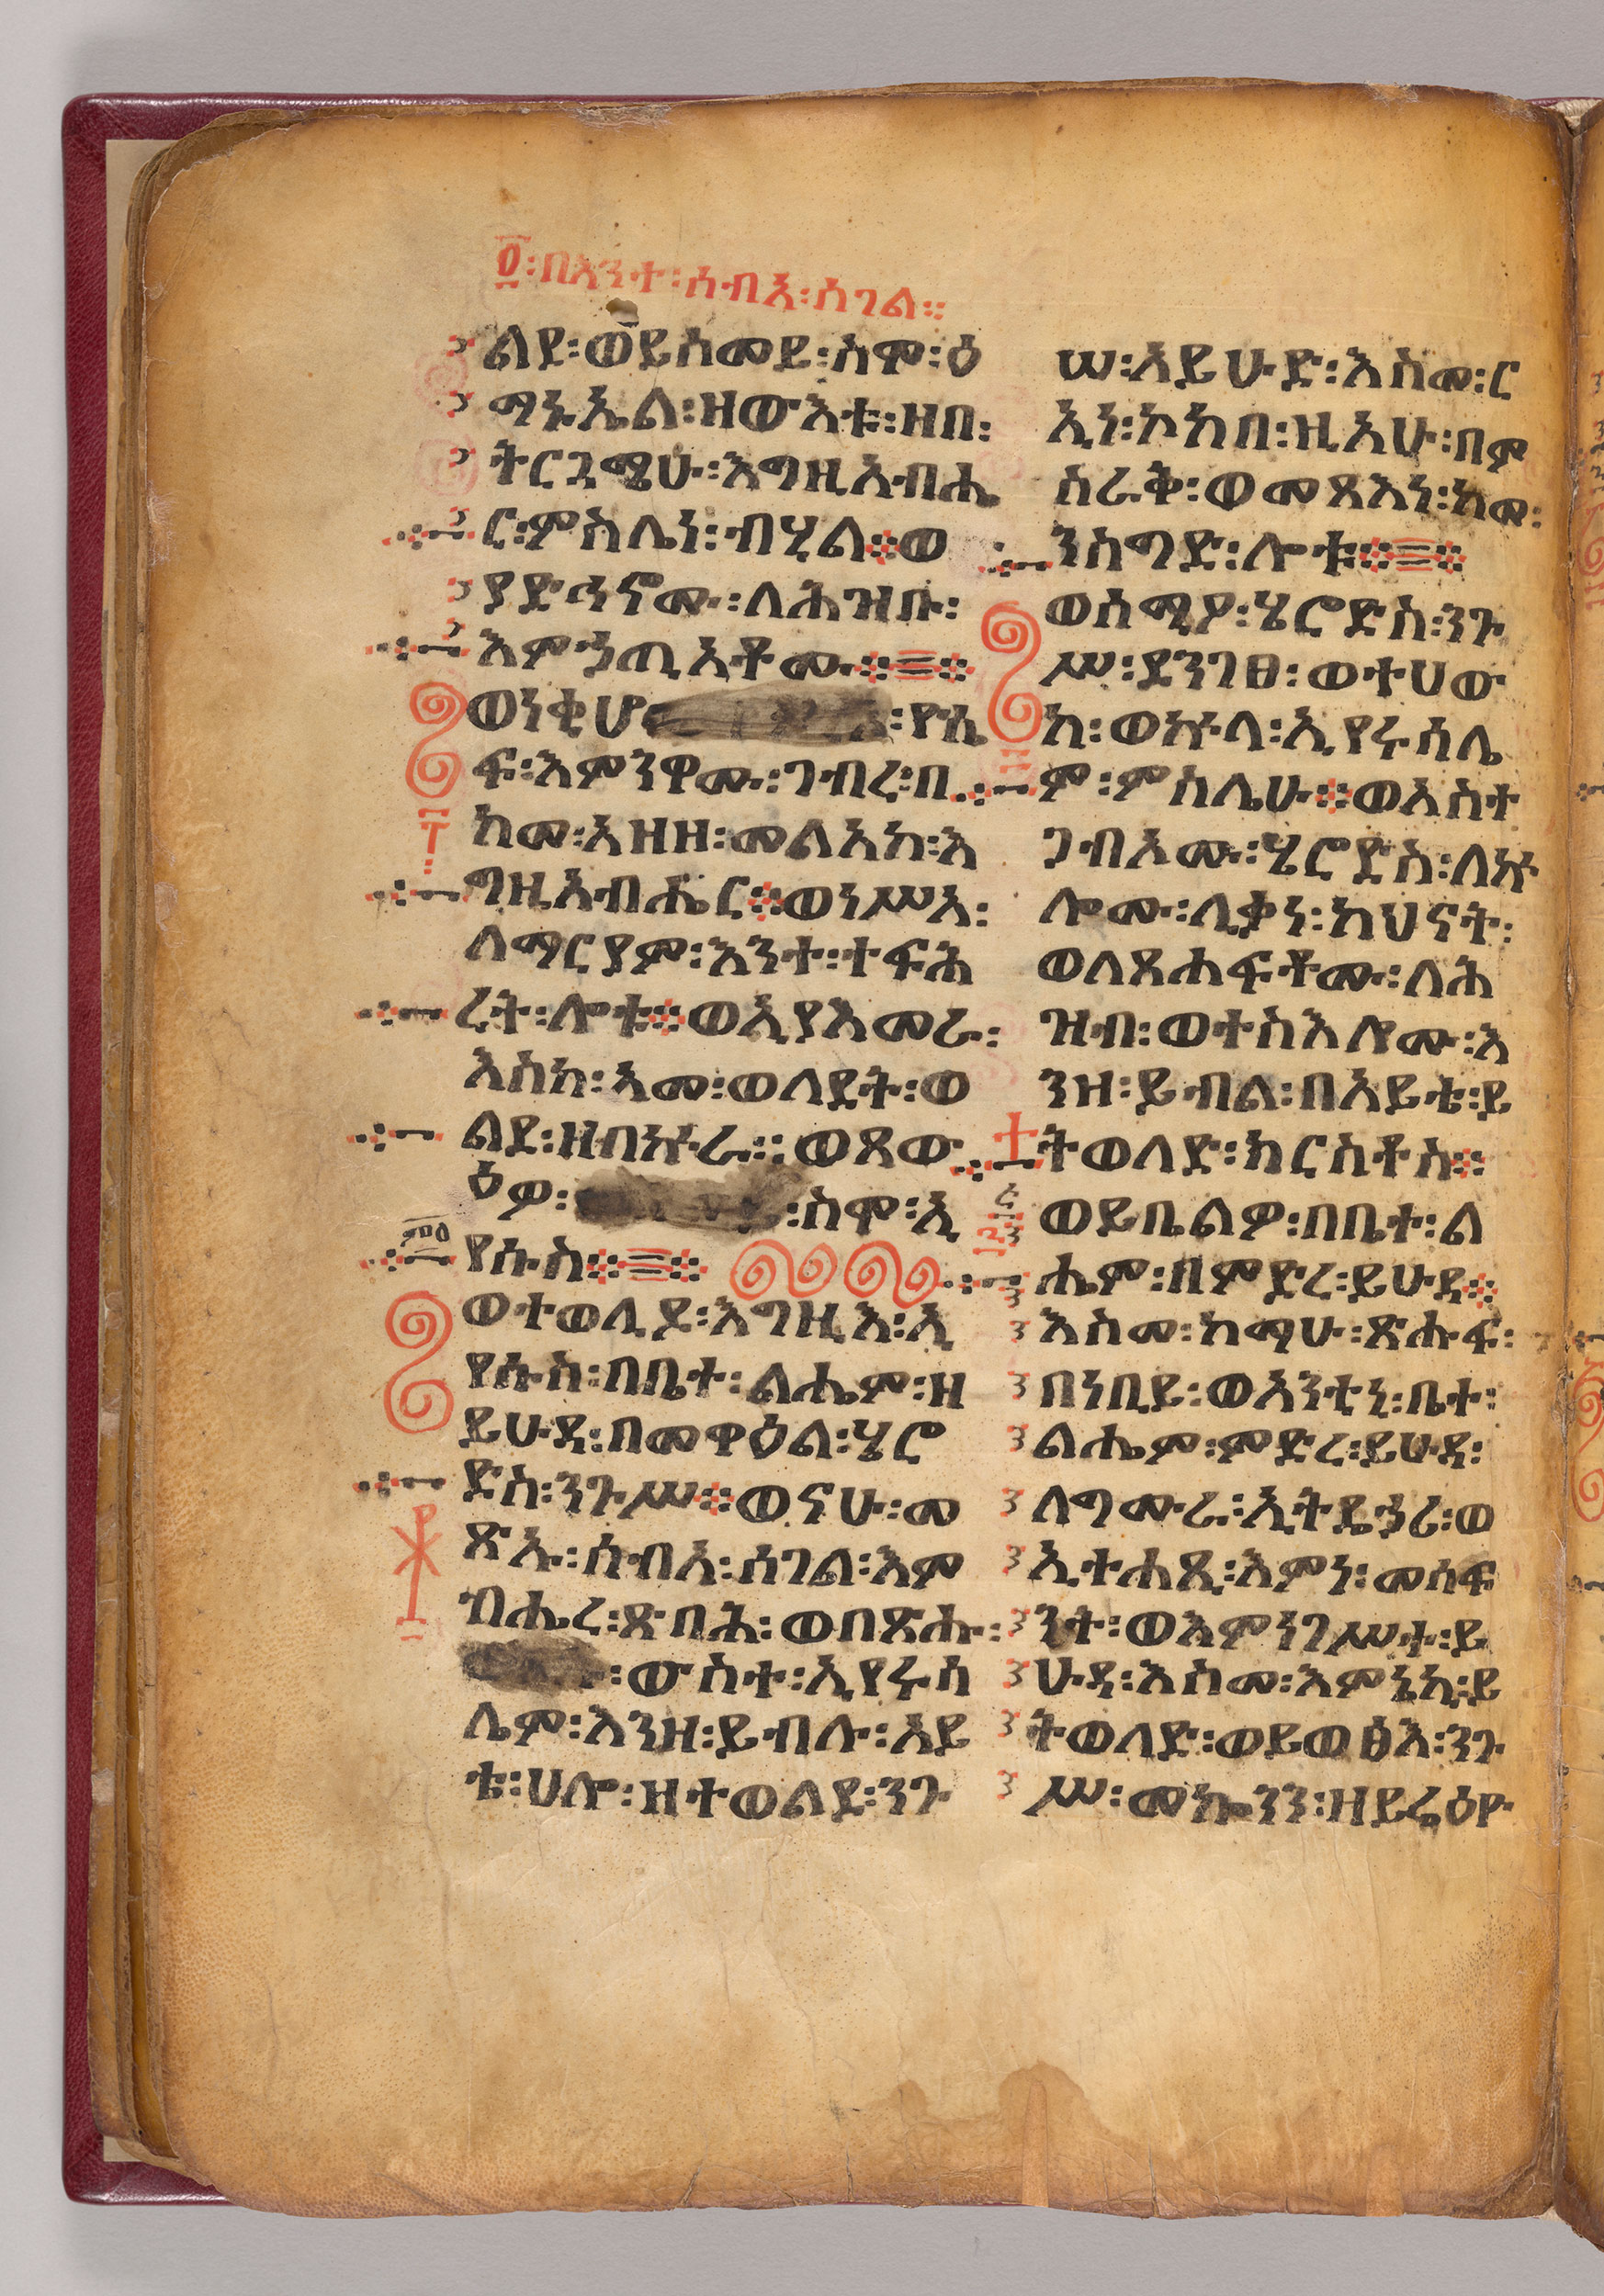 ፩፡በእንተ፡ሰብአ፡ሰገል።
ልደ፡ወይሰመይ፡ስሞ፡ዕ
ማኑኤል፡ዘውእቱ፡ዘበ፡
ትርጓሜሁ፡እግዚአብሔ
ር፡ምስሌነ፡ብሂል፨ወ
ያድኅኖሙ፡ለሕዝቡ፡
እምኃጢአቶሙ፨፨
ወነቂሆ ፡ዮሴ
ፍ፡እምንዋሙ፡ገብረ፡በ
ከመ፡አዘዘ፡መልአከ፡እ
ግዚአብሔር፨ወነሥአ፡
ለማርያም፡እንተ፡ተፍሕ
ረት፡ሎቱ፨ወኢያእመራ፡
እስከ፡አመ፡ወለደት፡ወ
ልደ፡ዘበኵራ፡፡ወጸው
ዕዎ፡ ፡ስሞ፡ኢ
የሱስ፨፨
ወተወሊዶ፡እግዚእ፡ኢ
የሱስ፡በቤተ፡ልሔም፡ዘ
ይሁዳ፡በመዋዕል፡ሄሮ
ድስ፡ንጉሥ፨ወናሁ፡መ
ጽኡ፡ሰብአ፡ሰገል፡እም
ብሔረ፡ጽባሕ፡ወበጽሑ፡
፡ውስተ፡ኢየሩሳ
ሌም፡እንዘ፡ይብሉ፡አይ
ቴ፡ሀሎ፡ዘተወልደ፡ንጉ
ሠ፡አይሁድ፡እስመ፡ር
ኢነ፡ኮከበ፡ዚአሁ፡በም
ስራቅ፡ወመጻእነ፡ከመ፡
ንስግድ፡ሎቱ፨፨
ወሰሚዖ፡ሄሮድስ፡ንጉ
ሥ፡ደንገፀ፡ወተሀው
ከ፡ወኵላ፡ኢየሩሳሌ
ም፡ምስሌሁ፨ወአስተ
ጋብአሙ፡ሄሮድስ፡ለኵ
ሎሙ፡ሊቃነ፡ከህናት፡
ወለጸሐፍቶሙ፡ለሕ
ዝብ፡ወተስእሎሙ፡እ
ንዘ፡ይብል፡በአይቴ፡ይ
ትወለድ፡ክርስቶስ፨
ወይቤልዎ፡በቤተ፡ል
ሔም፡ዘምድረ፡ይሁዳ፨
እስመ፡ከማሁ፡ጽሑፍ፡
በነቢይ፡ወአንቲኒ፡ቤተ፡
ልሔም፡ምድረ፡ይሁዳ፡
ለግሙራ፡ኢትዴኃሪ፡ወ
ኢተሐጺ፡እምነ፡መሳፍ
ንት፡ወእምነገሥተ፡ይ
ሁዳ፡እስመ፡እምኔኪ፡ይ
ትወለድ፡ወይወፅእ፡ንጉ
ሥ፡መኰንን፡ዘይሬዕዮ